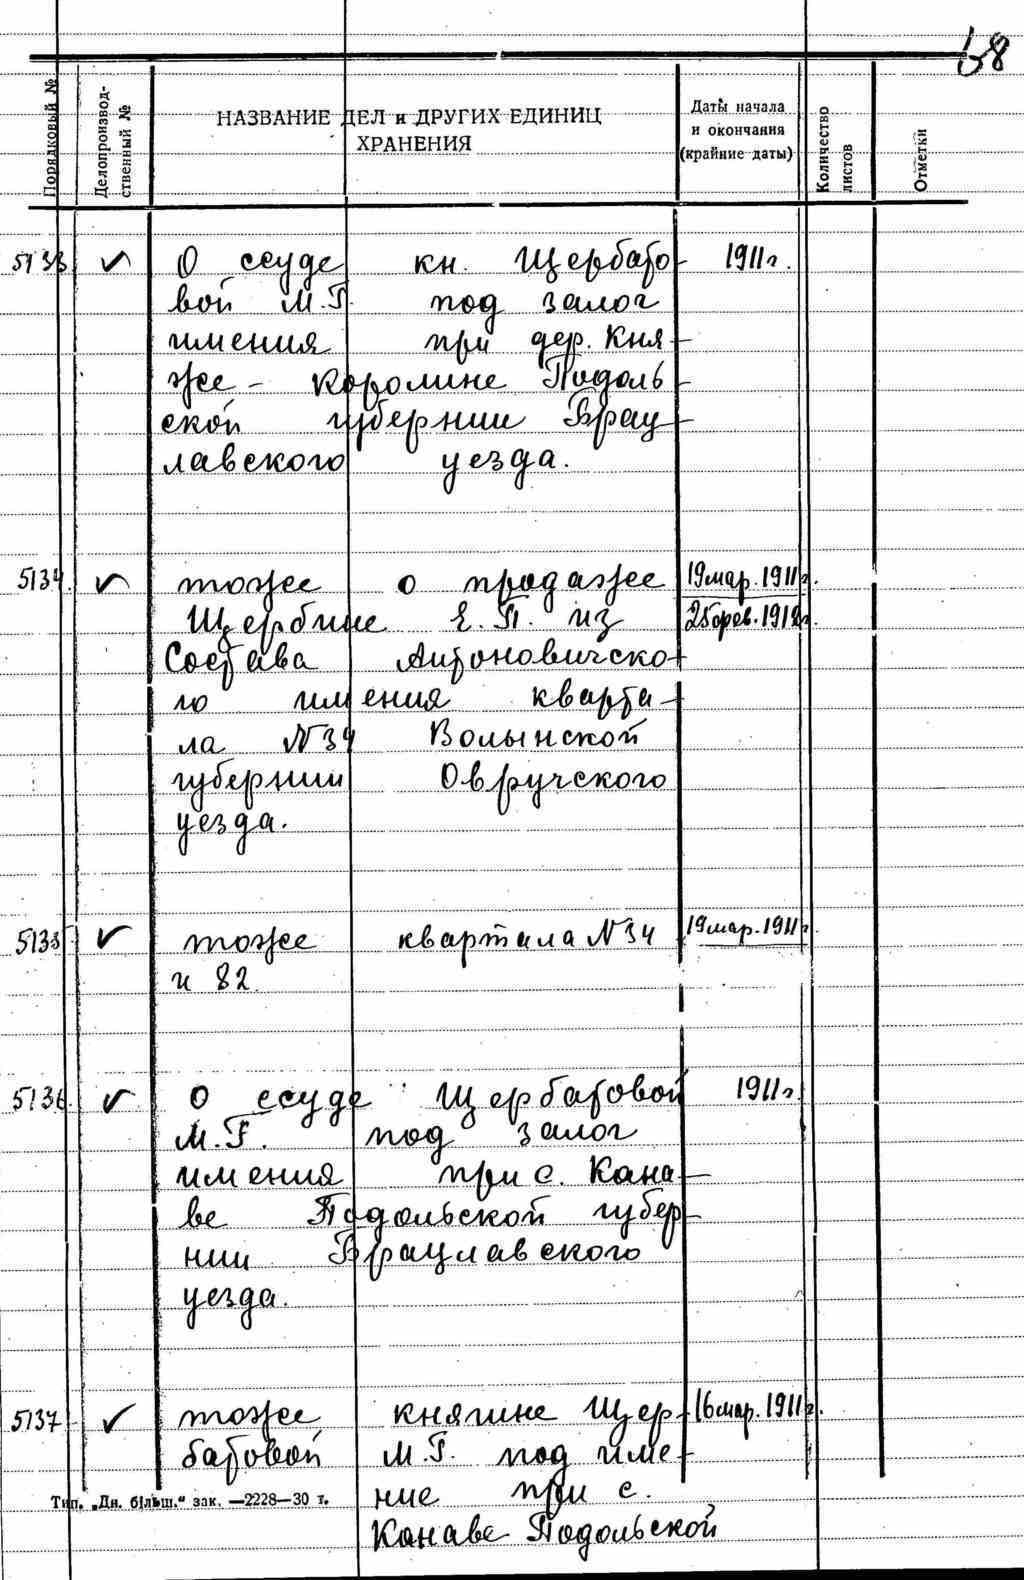 58
Порядковый №
Делопроизвод-
ственный №
НАЗВАНИЕ ДЕЛ и ДРУГИХ ЕДИНИЦ
ХРАНЕНИЯ
Даты начала
и окончания
(крайние даты)
Количество
листов
Отметки
5133 ✓ О ссуде кн. Щербато 1911 г.
вой М.Г. под залог
имения при дер. Кня-
же - Королине Подоль
ской губернии Брац
лавского уезда.
5134. ✓ тоже о продаже 19 мар. 1911 г.
Щербине Е.П. из 25 фев. 1912 г.
Состава Антоновичско-
го имения кварта-
ла №34 Волынской
губернии Овручского
уезда.
5135 ✓ тоже квартала №34 19 мар. 1911 г.
и 82.
5136. ✓ О ссуде Щербатовой 1911 г.
М.Г. под залог
имения при с. Кана-
ве Подольской губер-
нии Брацлавского
уезда.
5137 ✓ тоже княгине Щер- 16 мар. 1911 г.
батовой М.Г. под име-
ние при с.
Канаве Подольской
Тип. „Дн. більш." зак. —2228—30 т.